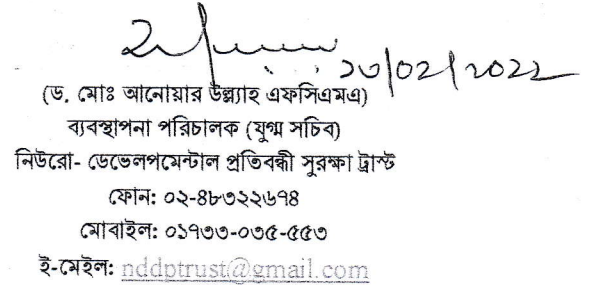 ২৩/০২/২০২২
(ড. মোঃ আনোয়ার উল্ল্যাহ এফসিএমএ)
ব্যবস্থাপনা পরিচালক (যুগ্ম সচিব)
নিউরো- ডেভেলপমেন্টাল প্রতিবন্ধী সুরক্ষা ট্রাস্ট
ফোন: ০২-৪৮৩২২৬৭৪
মোবাইল: ০১৭৩৩-০৩৫-৫৫৩
ই-মেইল: nddptrust@gmail.com